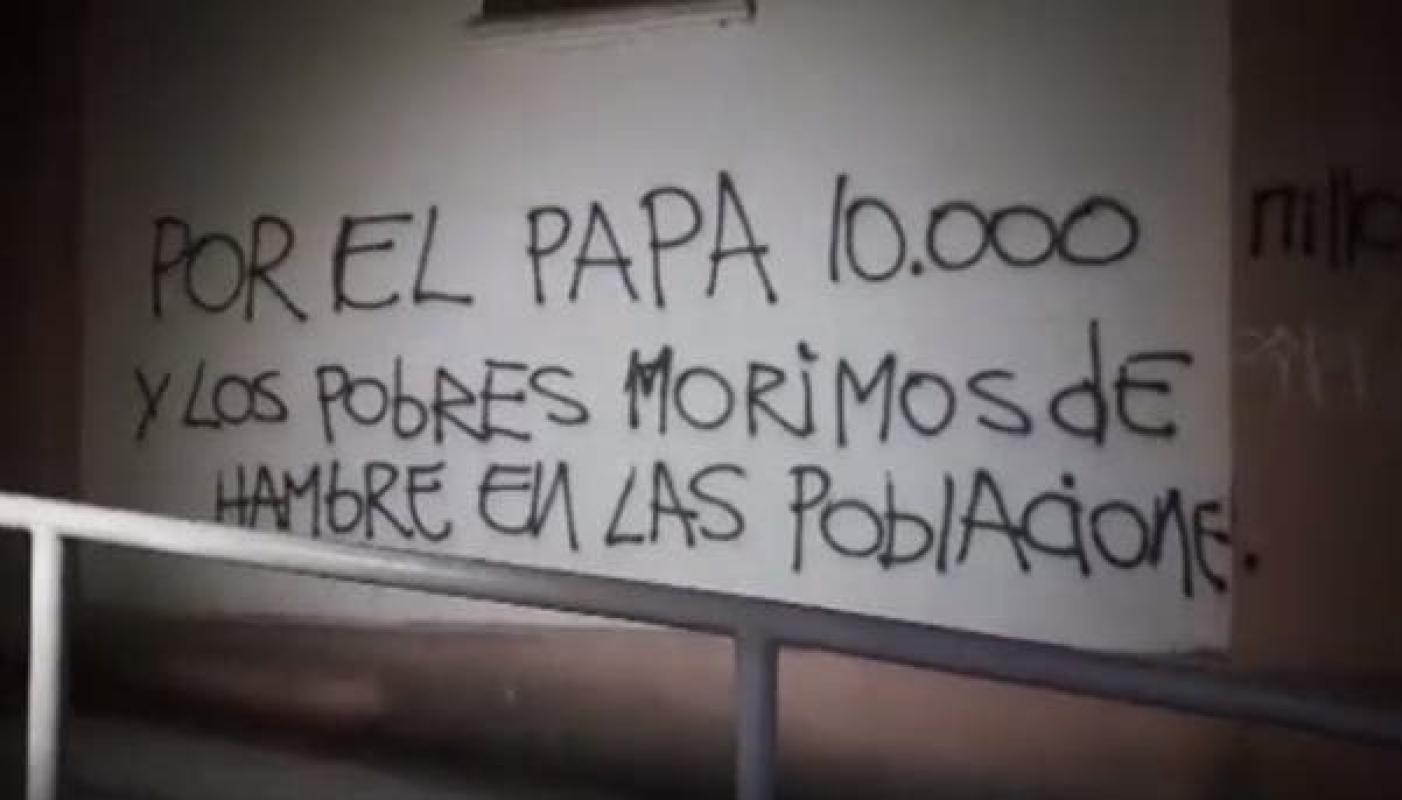 POR EL PAPA 10.000
Y LOS PObRES MORiMOS dE
HAMbRE EN LAS PoblAcione.